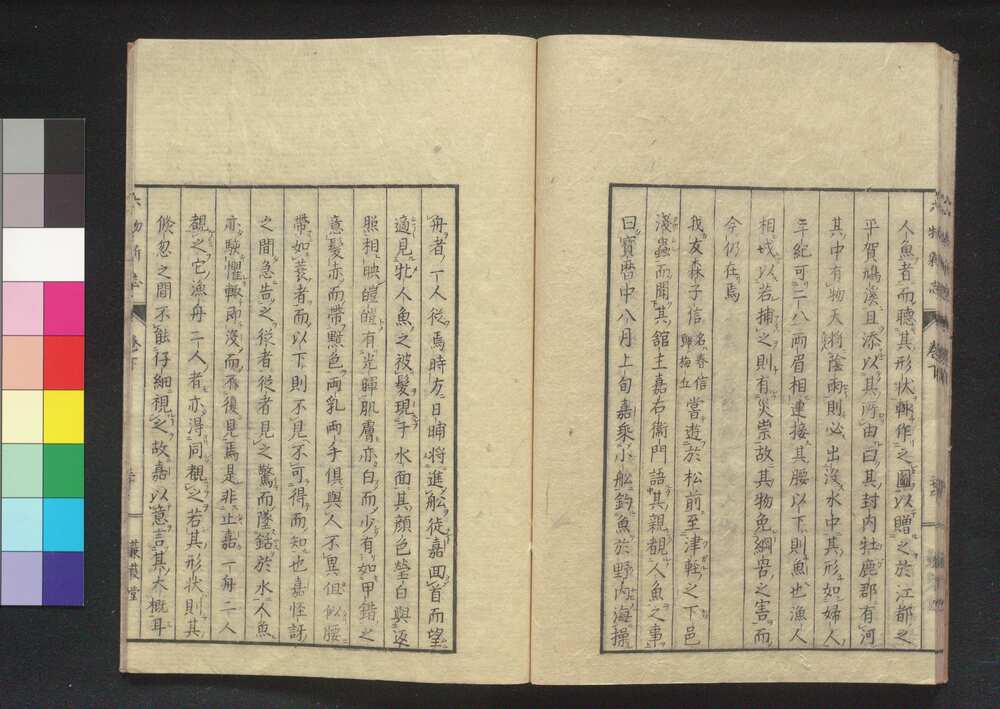 人魚者而聽其形狀輙作之圖以贈之於江都之
平賀鳩溪且添以其所由曰其封内牡鹿郡有河
其中有物天將陰雨則必出沒水中其形如婦人
年紀可二八兩眉相連接其腰以下則魚也漁人
相戒以若捕之則有災祟故其物免網罟之害而
今仍在焉
我友森子信
名春信
號梅丘
嘗遊於松前至津輕之下邑
淺蟲而聞其舘主嘉右衞門語其親覩人魚之事
曰寶曆中八月上旬嘉乘小舩釣魚於野内海操
舟者一人從焉時方日晡將進舩徒嘉回首而望
適見牝人魚之被髮現于水面其顏色瑩白與返
照相映皚皚有光暉肌膚亦白而少有如甲錯之
意髮亦而帶黳色兩乳兩手俱與人不異但似腰
帶如蓑者而以下則不見不可得而知也嘉怪訝
之間急告之從者從者見之驚而墜銛於水人魚
亦駭懼輙雨沒而不復見焉是非止嘉一舟二人
覩之它漁舟二人者亦得同觀之若其形狀則其
倏忽之間不能仔細視之故嘉以意言其大概耳
六物新志
卷下
蒹葭堂